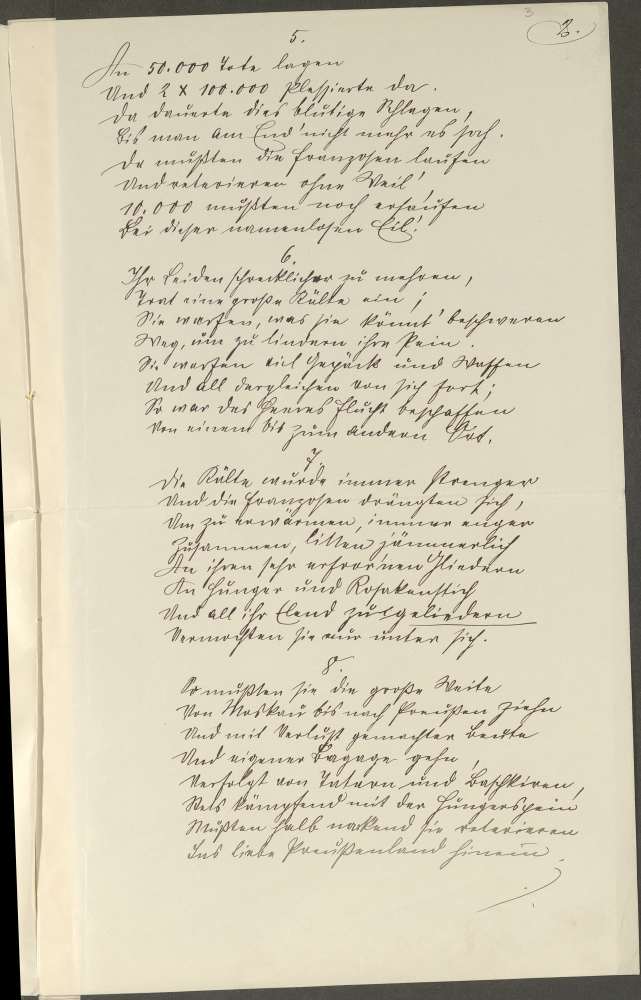 3
2.
5.
An 50.000 Tote lagen
Und 2 x 100.000 Plessierte da.
Da dauerte dies blutige Schlagen,
Bis man am End' nicht mehr es sah.
Da mußten die Franzosen laufen
Und reterieren ohne Weil',
10.000 mußten noch ersaufen
Bei dieser namenlosen Eil'.
6.
Ihr Leiden schrecklicher zu mehren,
Trat eine große Kälte ein;
Sie warfen, was sie könnt' beschweren
Weg, um zu lindern ihre Pein.
Sie warfen viel Gepäck und Waffen
Und all dergleichen von sich fort;
So war des Heeres Flucht beschaffen
Von einem bis zum andern Ort.
7.
Die Kälte wurde immer strenger
Und die Franzosen drängten sich,
Um zu erwärmen, immer enger
Zusammen, litten jämmerlich
An ihren sehr erfror'nen Gliedern
An Hunger und Kosakenstich
Und all ihr Elend
Vermochten sie nur unter sich.
8.
So mußten sie die große Weite
Von Moskau bis nach Preußen ziehn
Und mit Verlust gemachter Beute
Und eigener Bagage gehn,
Verfolgt von Tatarn und Baschkiren,
Stets kämpfend mit der Hungerspein
Mußten halb nackend sie reterieren
Ins liebe Preußenland hinein.